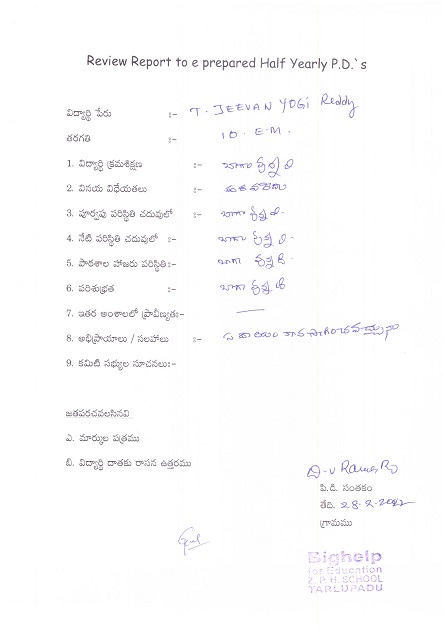 Review Report to e prepared Half Yearly P.D.`s
విద్యార్థి పేరు :- T. JEEVAN YOGI Reddy
తరగతి :- 10 E.M.
1. విద్యార్థి క్రమశిక్షణ :- బాగా వున్నది
2. వినయ విధేయతలు :-
3. పూర్వపు పరిస్థితి చదువులో :- బాగా వున్నది.
4. నేటి పరిస్థితి చదువులో :- బాగా వున్నది.
5. పాఠశాల హాజరు పరిస్థితి:- బాగా వున్నది
6. పరిశుభ్రత :- బాగా వున్నది
7. ఇతర అంశాలలో ప్రావీణ్యత:- —
8. అభిప్రాయాలు / సలహాలు :-
9. కమిటి సభ్యుల సూచనలు:-
జతపరచవలసినవి
ఎ. మార్కుల పత్రము
బి. విద్యార్థి దాతకు రాసిన ఉత్తరము
పి.డి. సంతకం
తేది. 28-2-2022
గ్రామము
Bighelp
for Education
Z. P. H. SCHOOL
TARLUPADU